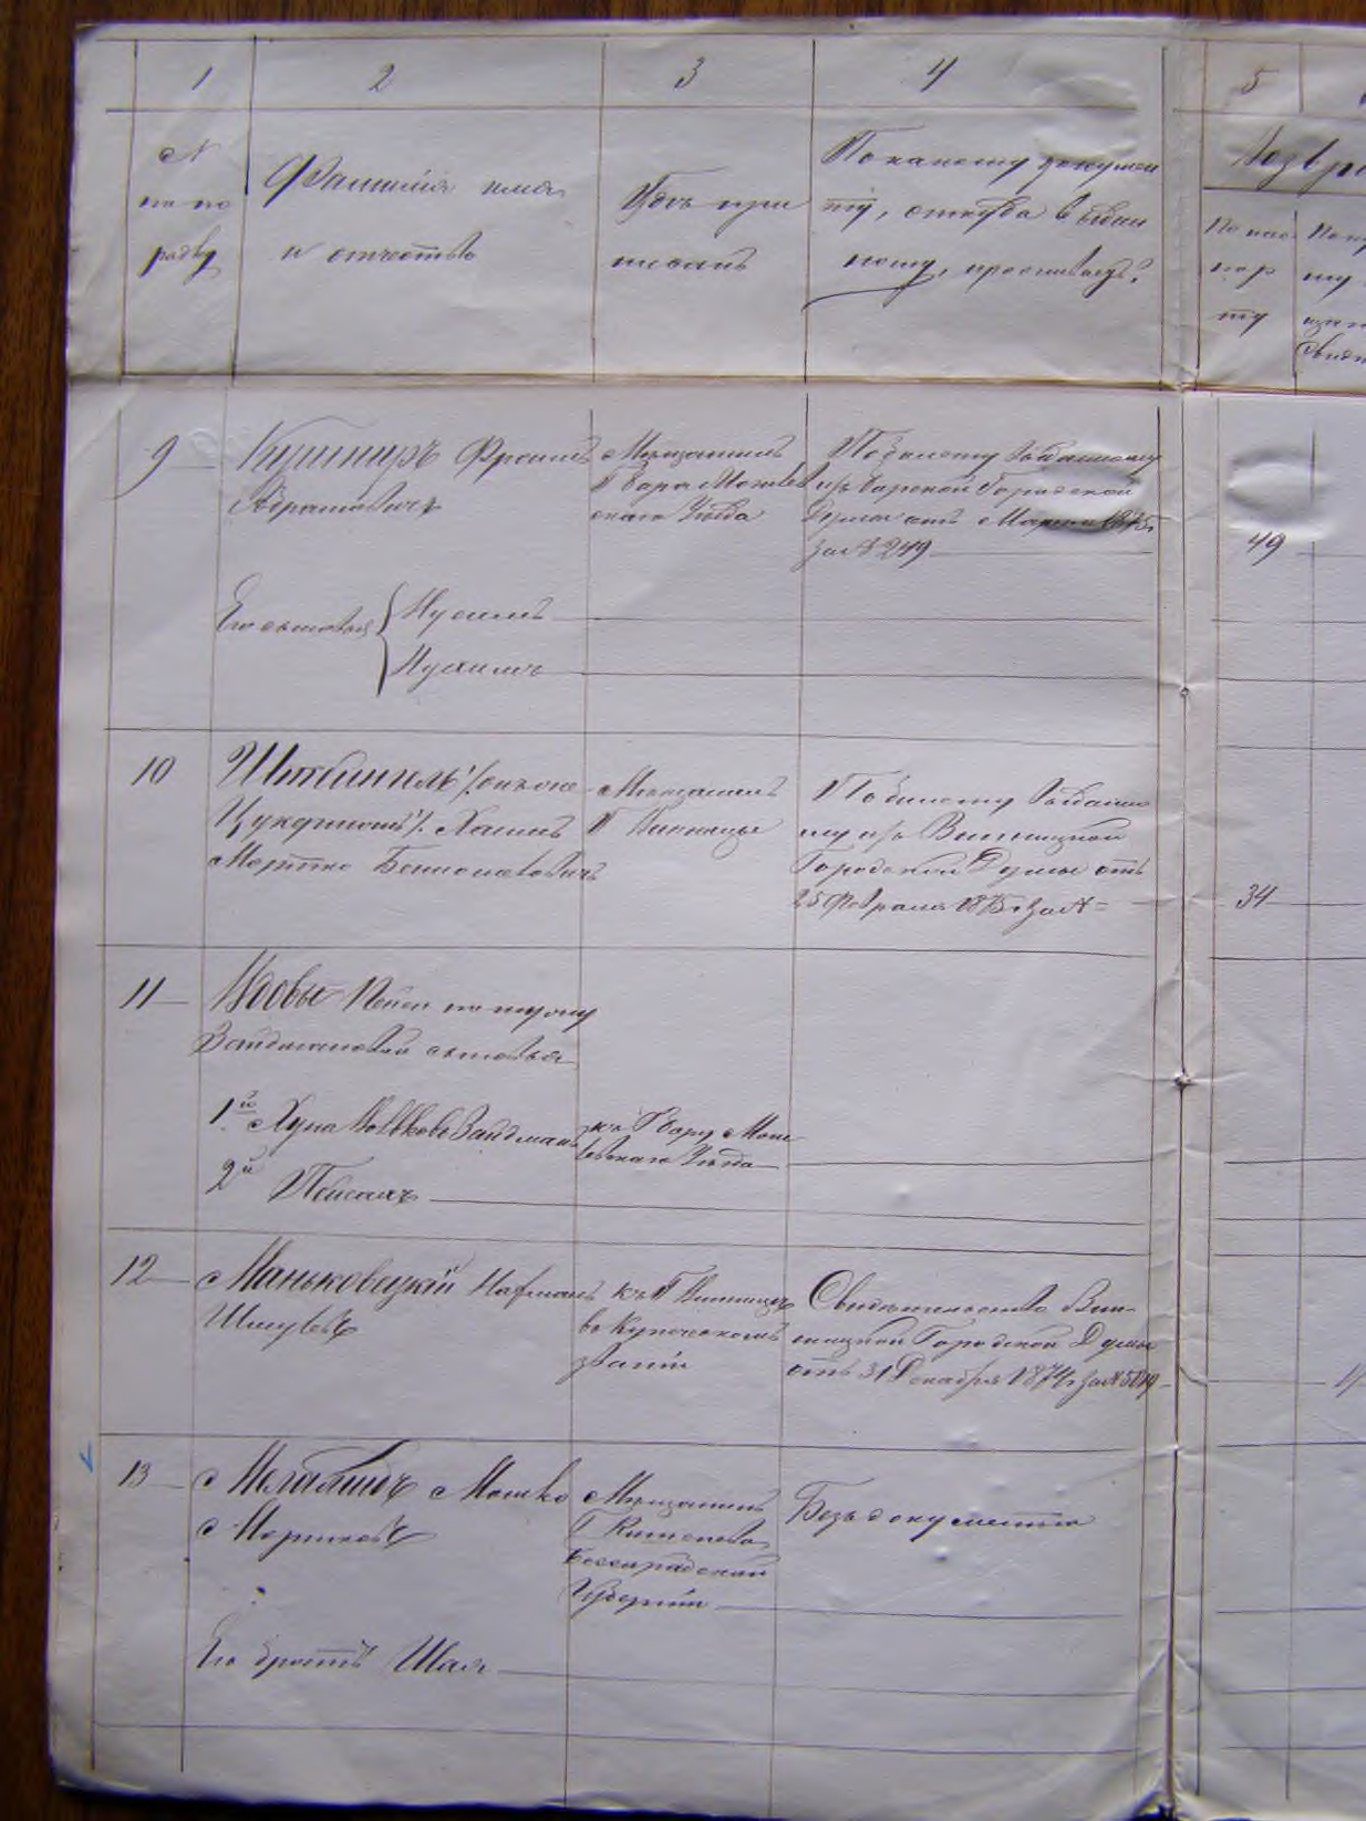 1 2 3 4 5
№ по по рядку
Фамилія имя и отчество
Гдѣ приписанъ
По какому документу, откуда выданному, проживаетъ?
Возвра
По пас пор ту
По
му
9 Кушниръ Фроимъ
Абрамовичъ
Мѣщанинъ
Г Бара Могилев
скаго Уѣзда
По билету выданному
изъ Барской Городской
Думы отъ Марта 1875г
за № 249
49
Его сыновья Нусимъ
Нухимъ
10
Цукерманъ Хаимъ
Мортко
Мѣщанинъ
Г Винницы
По билету выданно
му изъ Винницкой
Городской Думы отъ
25 Февраля 1875г за №
34
11 Вдовы по мужу
Зайдмановой сыновья
1й Волькове Зайдманъ
къ Г Бару Моги
левскаго Уѣзда
2й Пейсахъ
12 Маньковецкій Нахманъ
Шмулев
къ Г Винницѣ
въ Купеческомъ
званіи
Свидѣтельство Вин-
ницкой Городской Думы
отъ 31 Декабря 1874г за №
13 Мошко
Мѣщанинъ
Г Кишенева
Бессарабской
Губерніи
Безъ документа
Его братъ Шая